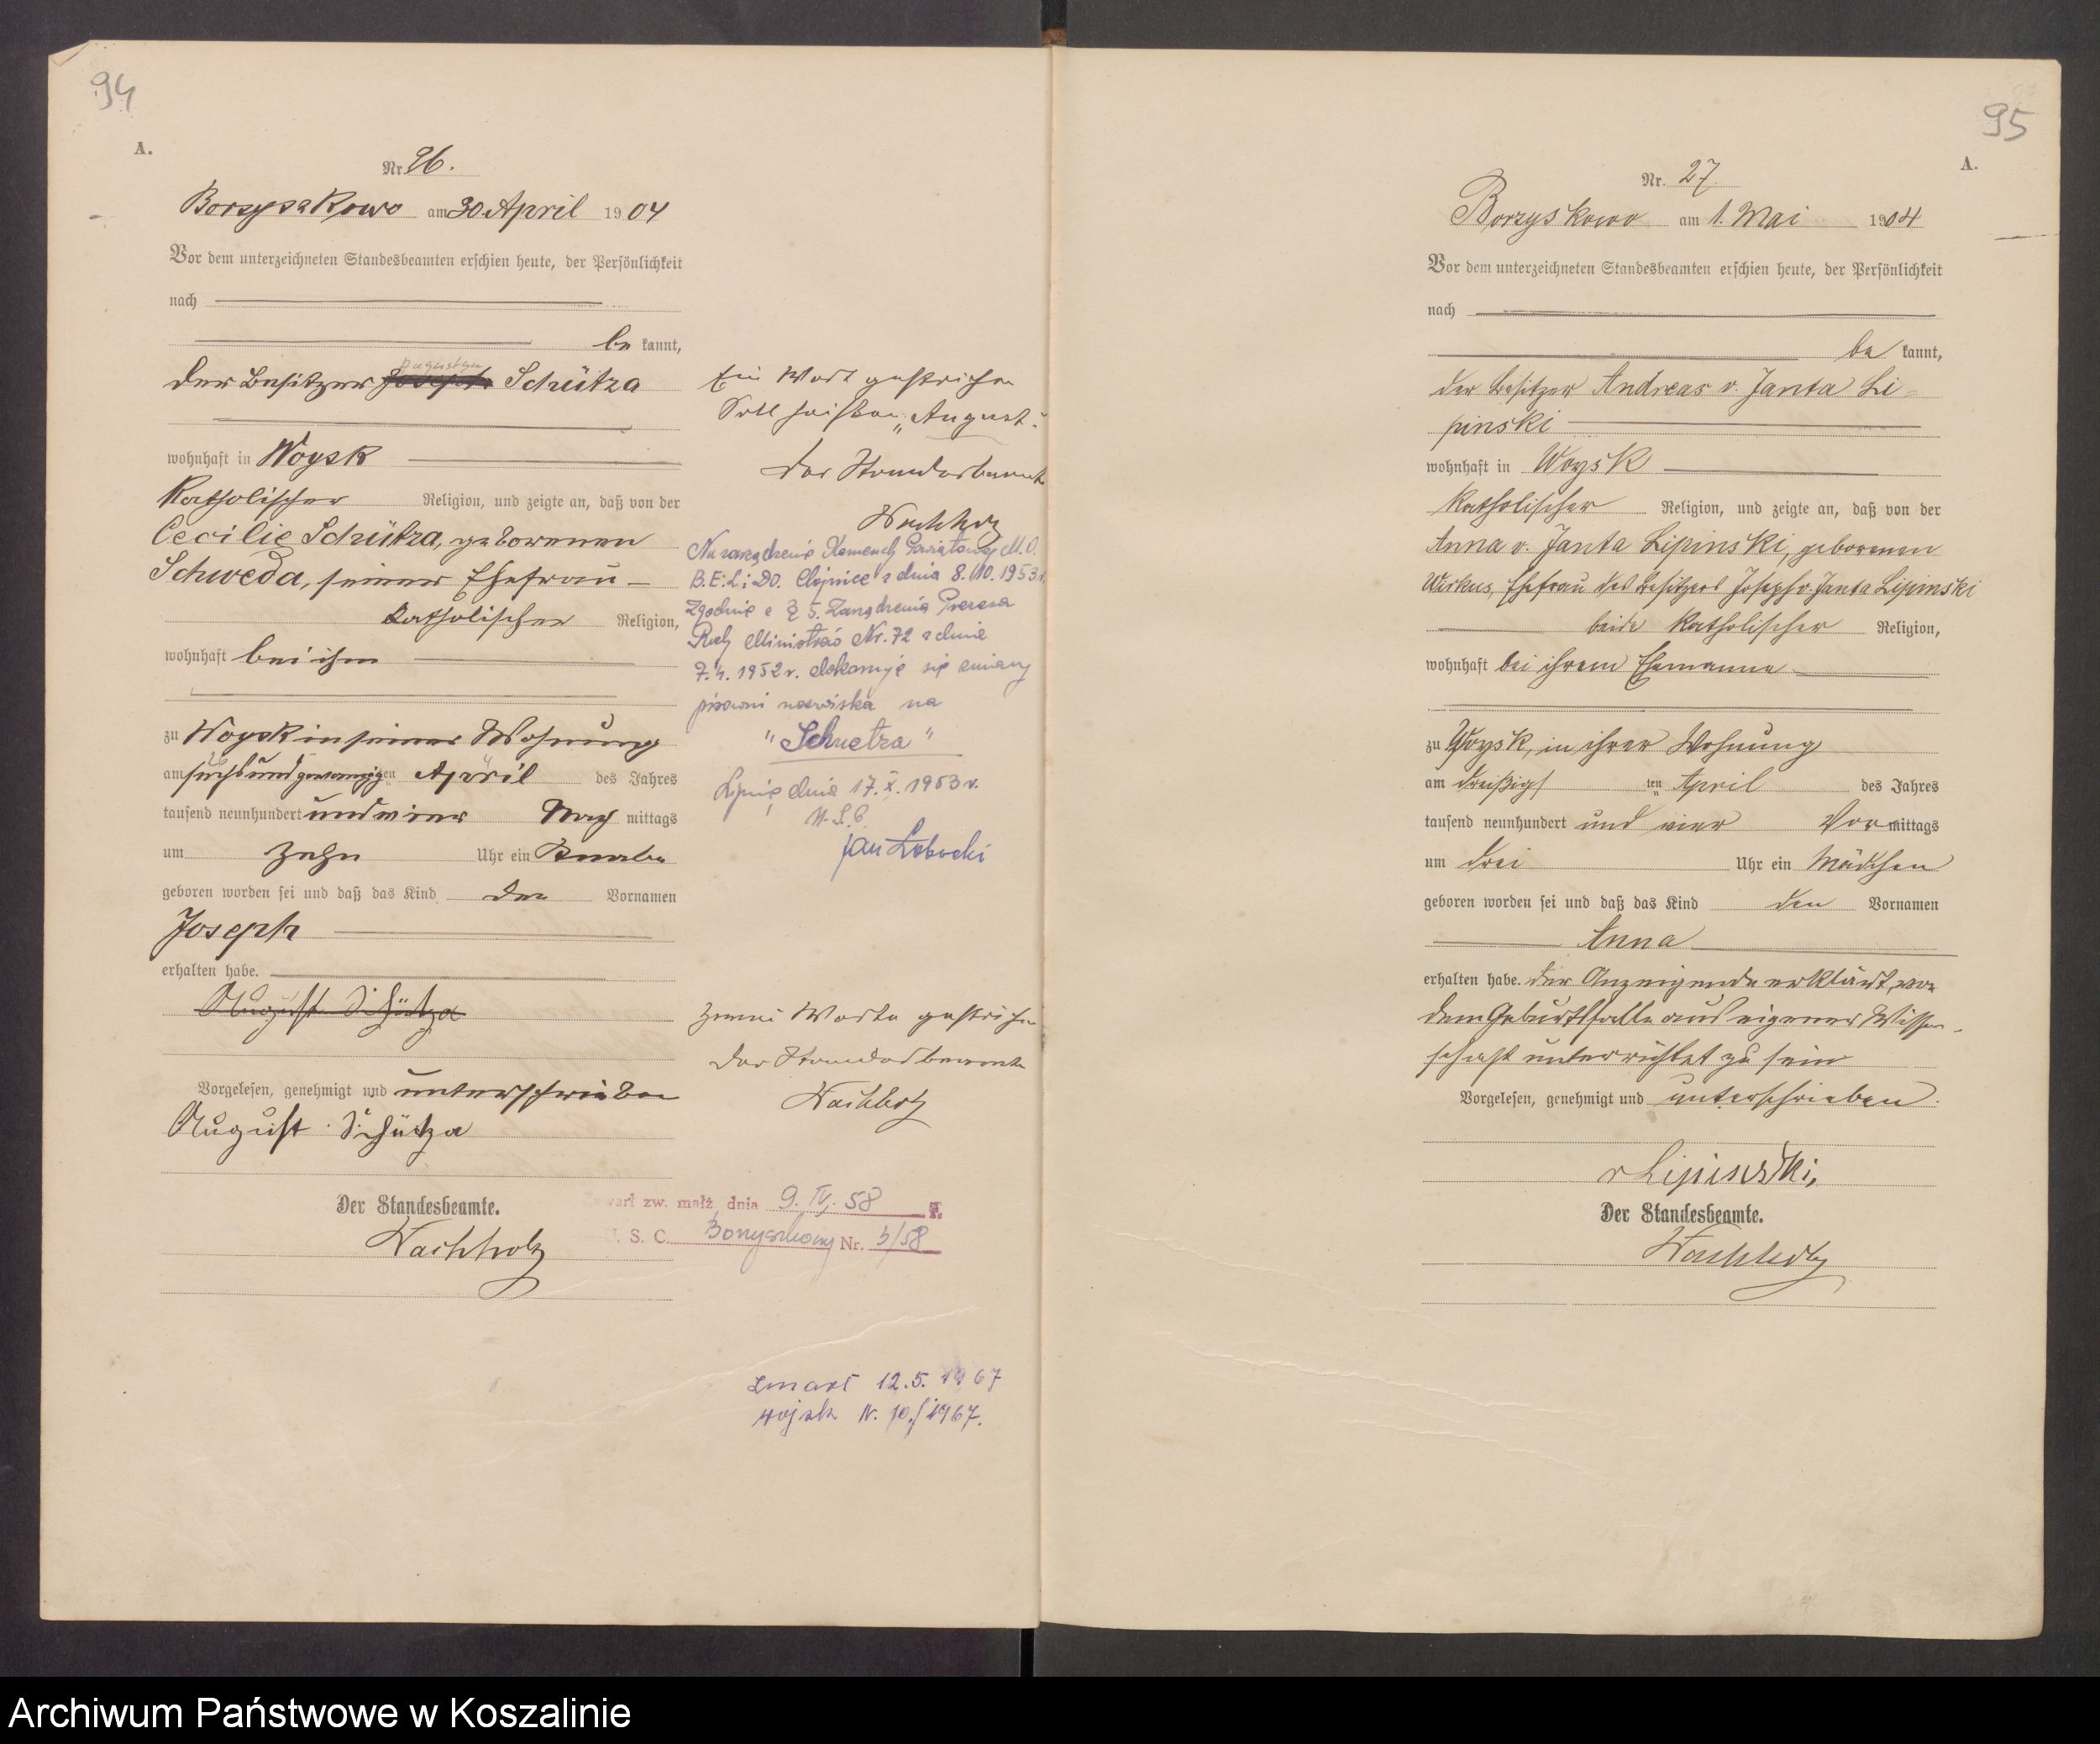 94
A.
Nr. 26.
Borzyszkowo am 30 April 1904
Vor dem unterzeichneten Standesbeamten erschien heute, der Persönlichkeit
nach
be kannt,
der Besitzer Joseph Schütza
wohnhaft in Woysk
katholischer Religion, und zeigte an, daß von der
Cecilie Schütza, geborenen
Schweda, seiner Ehefrau
katholischer Religion,
wohnhaft bei ihm
zu Woysk in seiner Wohnung
am sechsundzwanzigten April des Jahres
tausend neunhundert und vier Nach mittags
um zehn Uhr ein Knabe
geboren worden sei und daß das Kind den Vornamen
Joseph
erhalten habe.
August Schütza
Vorgelesen, genehmigt und unterschrieben
August Schütza
Der Standesbeamte.
Wachholz
Ein Wort gestrichen
Soll heißen „August“
Der Standesbeamte
Wachholz
Na zarządzenie Komendy Powiatowej M.O.
B.E.L. i D.O. Chojnice z dnia 8.10.1953 r.
Zgodnie z § 5. Zarządzenia Prezesa
Rady Ministrów Nr. 72 z dnia
7.4.1952 r. dokonuje się zmiany
pisowni nazwiska na
"Schuetza"
Lipnie dnia 17.X.1953 r.
U.S.C.
Jan
Zwei Worte gestrichen
Der Standesbeamte
Wachholz
zw. małż. dnia 9. IV. 58
U. S. C. Nr. 3/58
zmarł 12.5.1967
Wojsk N. 10/1967.
95
A.
Nr. 27
Borzyskowo am 1. Mai 1904
Vor dem unterzeichneten Standesbeamten erschien heute, der Persönlichkeit
nach
be kannt,
der Besitzer Andreas v. Janta Li=
pinski
wohnhaft in Woysk
katholischer Religion, und zeigte an, daß von der
Anna v. Janta Lipinski, geborenen
Wirkus, Ehefrau des Besitzers Joseph v. Janta Lipinski
beide katholischer Religion,
wohnhaft bei ihrem Ehemanne
zu Woysk, in ihrer Wohnung
am dreißigs ten April des Jahres
tausend neunhundert und vier Vor mittags
um drei Uhr ein Mädchen
geboren worden sei und daß das Kind den Vornamen
Anna
erhalten habe. Der Anzeigende erklärt, von
dem Geburtsfalle aus eigener Wissen-
schaft unterrichtet zu sein
Vorgelesen, genehmigt und unterschrieben.
v Lipinski,
Der Standesbeamte.
Wachholz
Archiwum Państwowe w Koszalinie